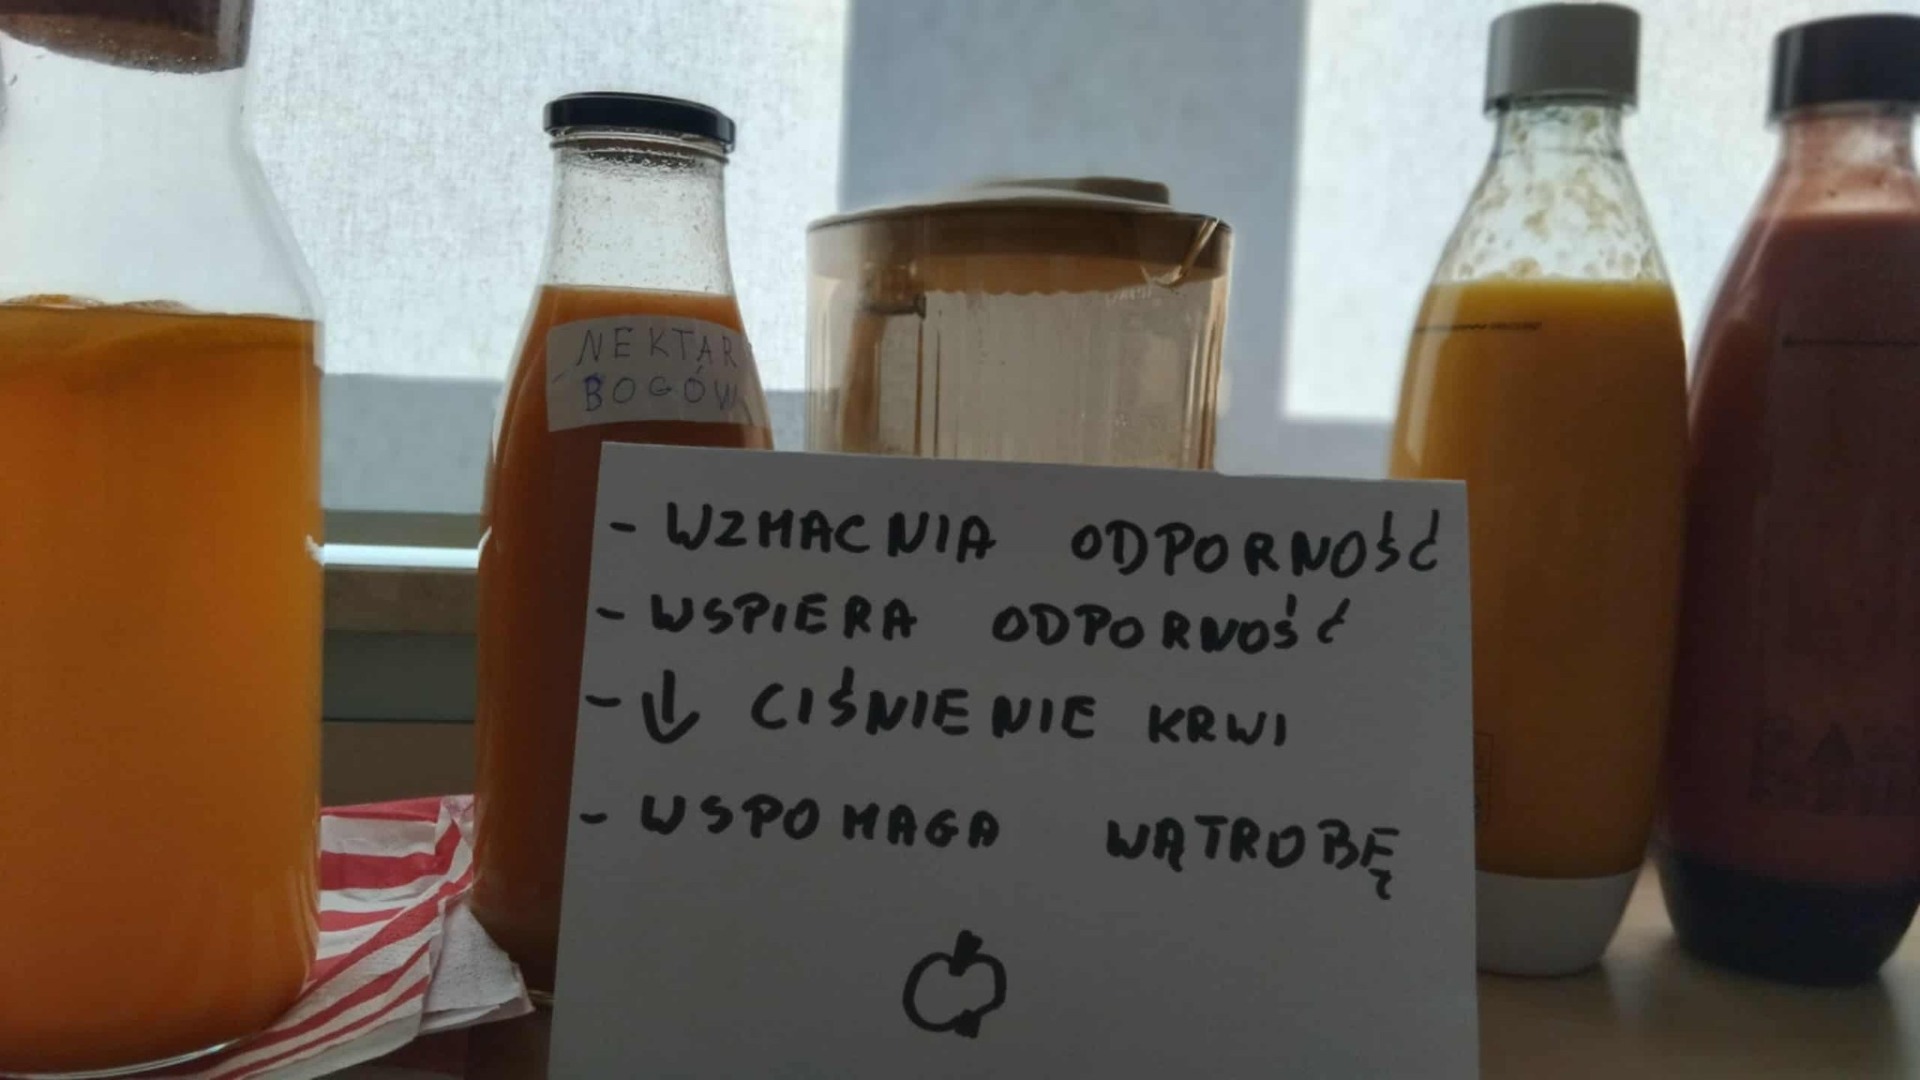 NEKTAR
BOGÓW
- WZMACNIA ODPORNOŚĆ
- WSPIERA ODPORNOŚĆ
- ↓ CIŚNIENIE KRWI
- WSPOMAGA WĄTROBĘ